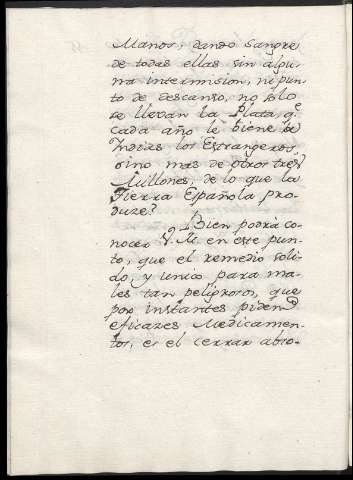 Manos, dando sangre
de todas ellas sin algu-
na intermision, ni pun-
to de descanso, no solo
se llevan la Plata, q.e
cada año le biene de
Indias los Estrangeros
sino mas de otros tres
Millones, de lo que la
Tierra Española pro-
duze?
Bien podrà co-
nocer V. M. en este pun-
to, que el remedio soli-
do, y unico para ma-
les tan peligrosos, que
por instantes piden
eficazes Medicamen-
tos, es el cerrar abso-